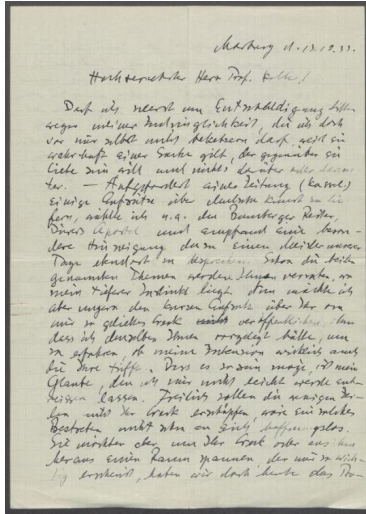 Marburg d. 13.12.33.
Hochverehrter Herr Prof. Kolbe!
Darf ich zuerst um Entschuldigung bitten
wegen meiner Zudringlichkeit, die ich doch
vor mir selbst nicht bekehren darf, weil sie
wahrhaft einer Sache gilt, der gegenüber sie
Liebe sein will und nichts darüber oder darun
ter. — Aufgefordert einer Zeitung (Kassel)
einige Aufsätze über deutsche Kunst zu lie
fern, wählte ich u.a. den Bamberger Reiter,
Dürers Apostel und empfand eine beson-
dere Hinneigung dazu einen Meister unserer
Tage ebendort zu besprechen. Schon die beiden
genannten Themen werden Ihnen verraten, wo
mein tieferer Instinkt liegt. Nun möchte ich
aber ungern den kurzen Aufsatz über Ihr von
mir so geliebtes Werk veröffentlichen, ohne
dass ich denselben Ihnen vorgelegt hätte, um
zu erfahren, ob meine Intension wirklich auch
die Ihre träfe. Dass es so sein möge, ist mein
Glaube, den ich mir nicht leicht werde ent
reissen lassen. Freilich sollen die wenigen Zei-
len nicht Ihr Werk erschöpfen, wäre ein solches
Bestreben nicht schon an sich hoffnungslos.
Sie möchten aber um Ihr Werk oder aus ihm
heraus einen Raum spannen, der mir so wich-
tig erscheint, haben wir doch heute das